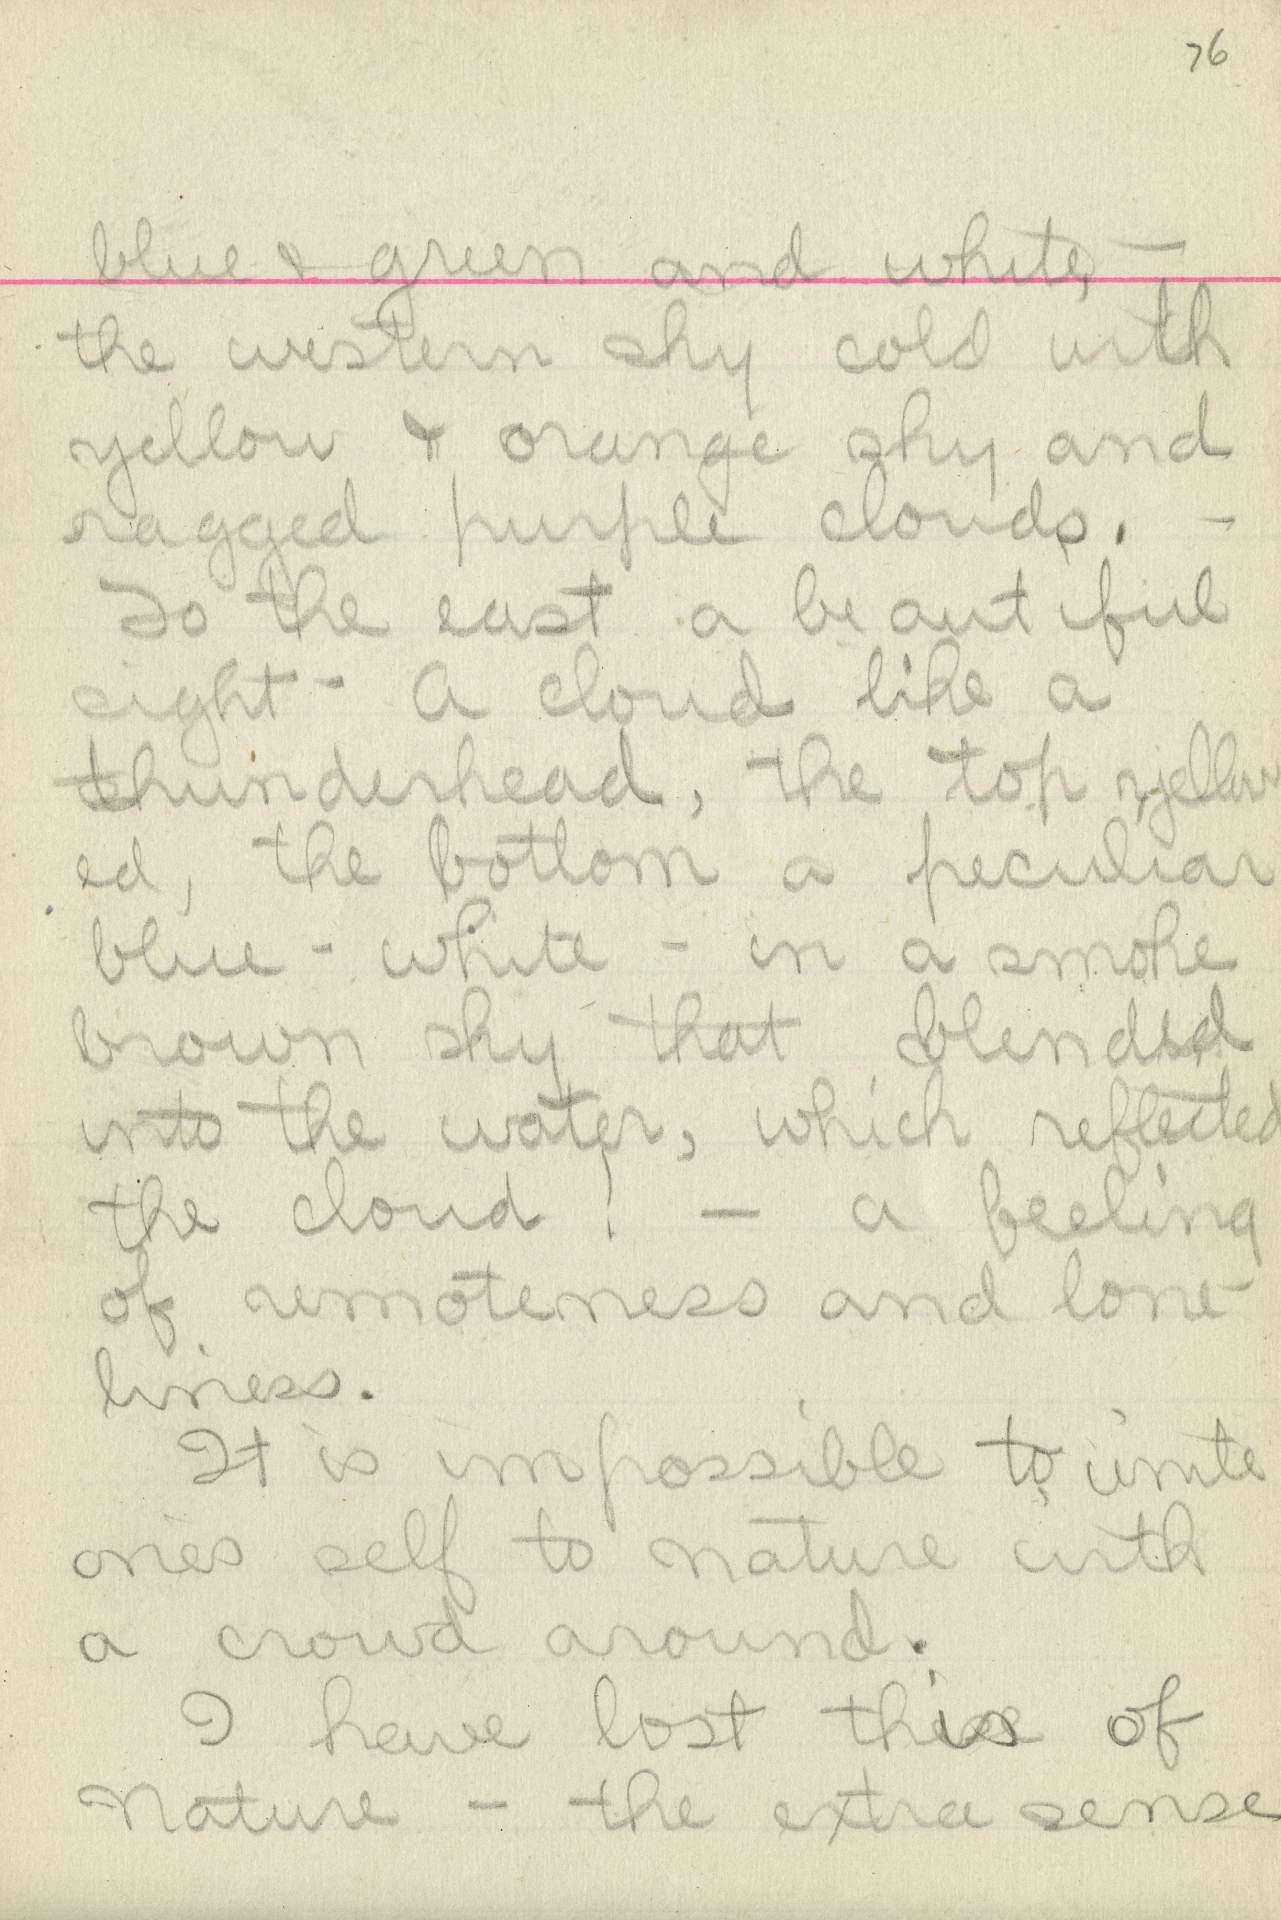 76
blue & green and white, —
the western sky cold with
yellow & orange sky and
ragged purple clouds. -
To the east a beautiful
sight - A cloud like a
thunderhead, the top yellow
ed, the bottom a peculiar
blue - white - in a smoke
brown sky that blended
into the water, which reflected
the cloud! — a feeling
of remoteness and lone
liness.
It is impossible to unite
one's self to nature with
a crowd around.
I have lost this of
Nature - the extra sense